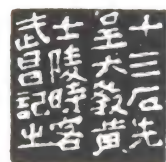 十三石先
呈大教黄
士陵時客
武昌記之